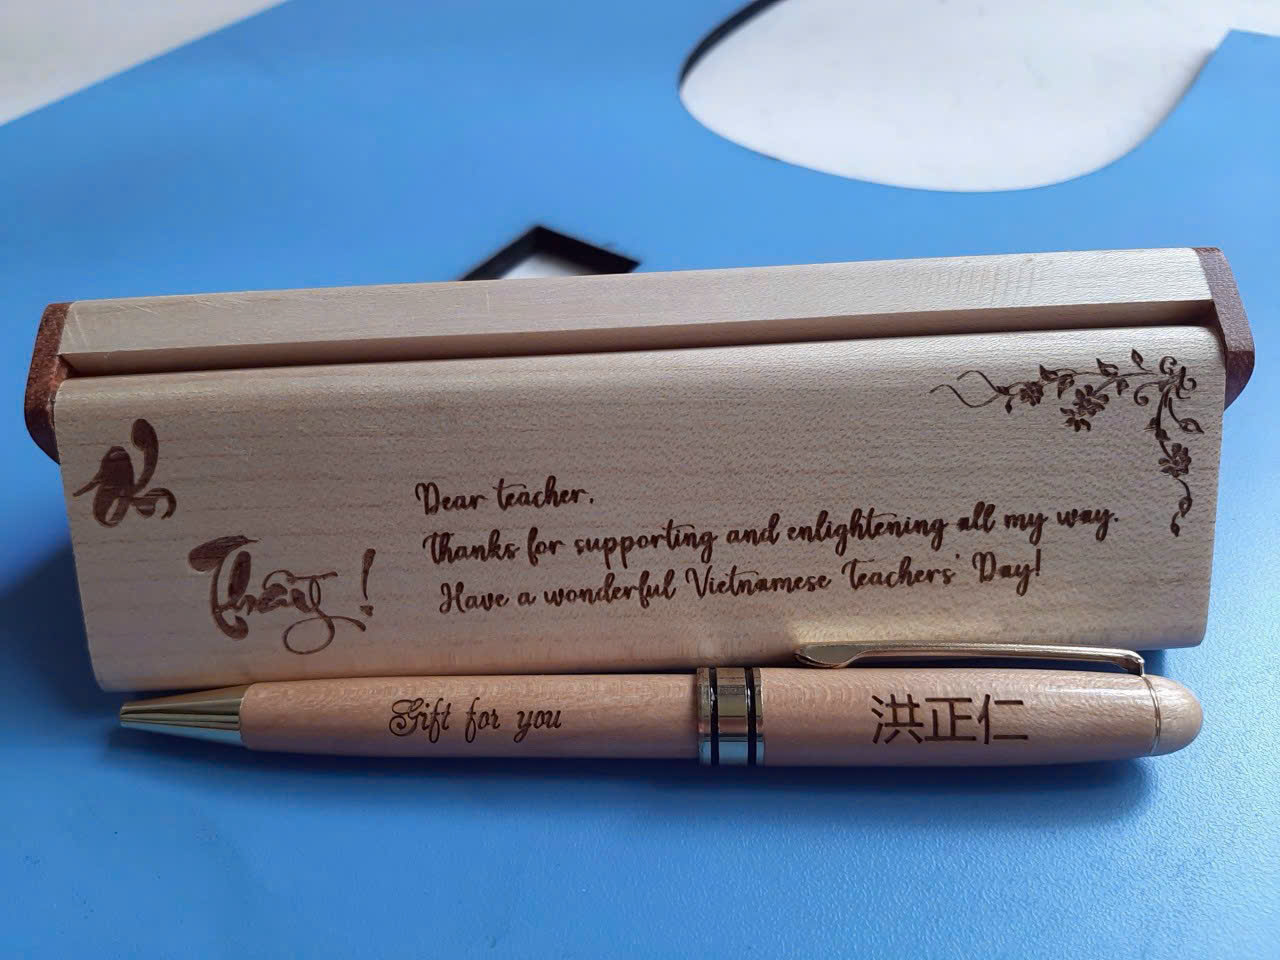 Ơn
Thầy!
Dear teacher,
Thanks for supporting and enlightening all my way.
Have a wonderful Vietnamese Teachers' Day!
Gift for you
洪正仁